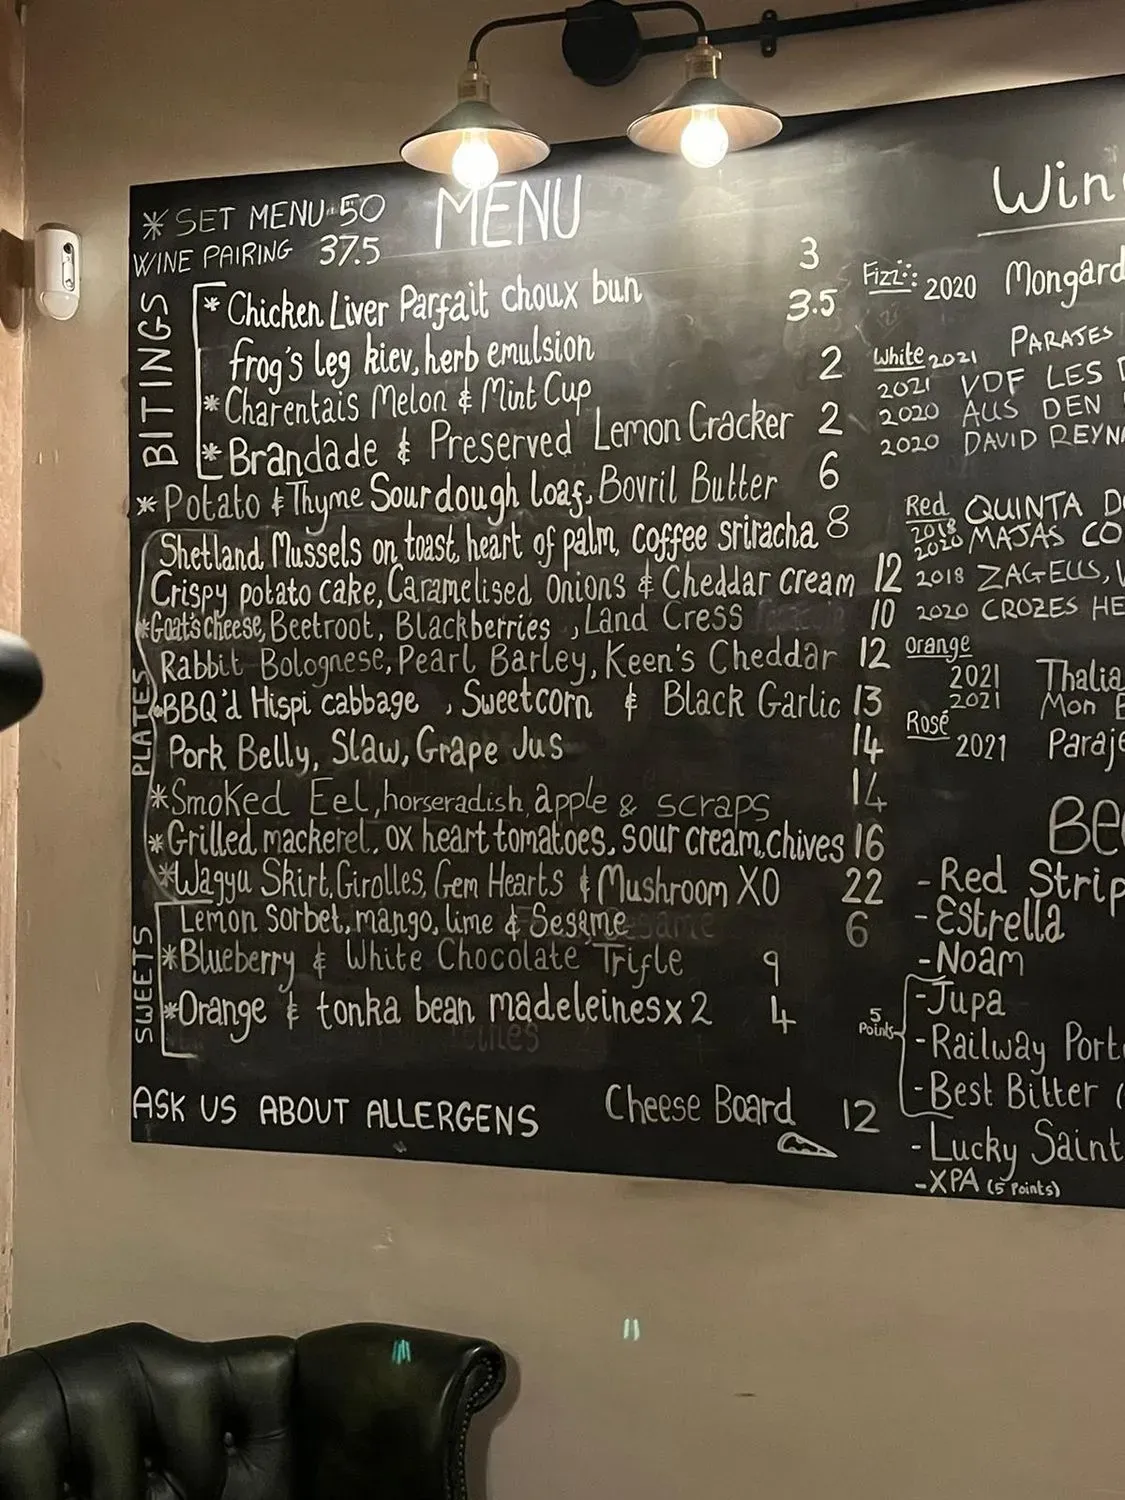 * SET MENU 50
WINE PAIRING 37.5
MENU
BITINGS
* Chicken Liver Parfait choux bun 3
frog's leg kiev, herb emulsion 3.5
* Charentais Melon & Mint Cup 2
* Brandade & Preserved Lemon Cracker 2
* Potato & Thyme Sourdough loaf, Bovril Butter 6
PLATES
Shetland Mussels on toast, heart of palm, coffee sriracha 8
Crispy potato cake, Caramelised Onions & Cheddar cream 12
* Goat's cheese, Beetroot, Blackberries, Land Cress 10
Rabbit Bolognese, Pearl Barley, Keen's Cheddar 12
* BBQ'd Hispi cabbage, Sweetcorn & Black Garlic 13
Pork Belly, Slaw, Grape Jus 14
* Smoked Eel, horseradish, apple & scraps 14
* Grilled mackerel, ox heart tomatoes, sour cream, chives 16
* Wagyu Skirt, Girolles, Gem Hearts & Mushroom XO 22
SWEETS
Lemon Sorbet, mango, lime & Sesame 6
* Blueberry & White Chocolate Trifle 9
* Orange & tonka bean madeleines x2 4
ASK US ABOUT ALLERGENS
Cheese Board 12
Win
Fizz 2020 Mongard
White 2021 PARAJES
2021 VDF LES
2020 AUS DEN
2020 DAVID REYN
Red QUINTA D
2018
2020 MAJAS CO
2018 ZAGEUS,
2020 CROZES HE
Orange
2021 Thalia
2021 Mon
Rosé
2021 Paraje
Be
- Red Strip
- Estrella
- Noam
- Jupa
5 Points
- Railway Port
- Best Bitter (
- Lucky Saint
- XPA (5 Points)